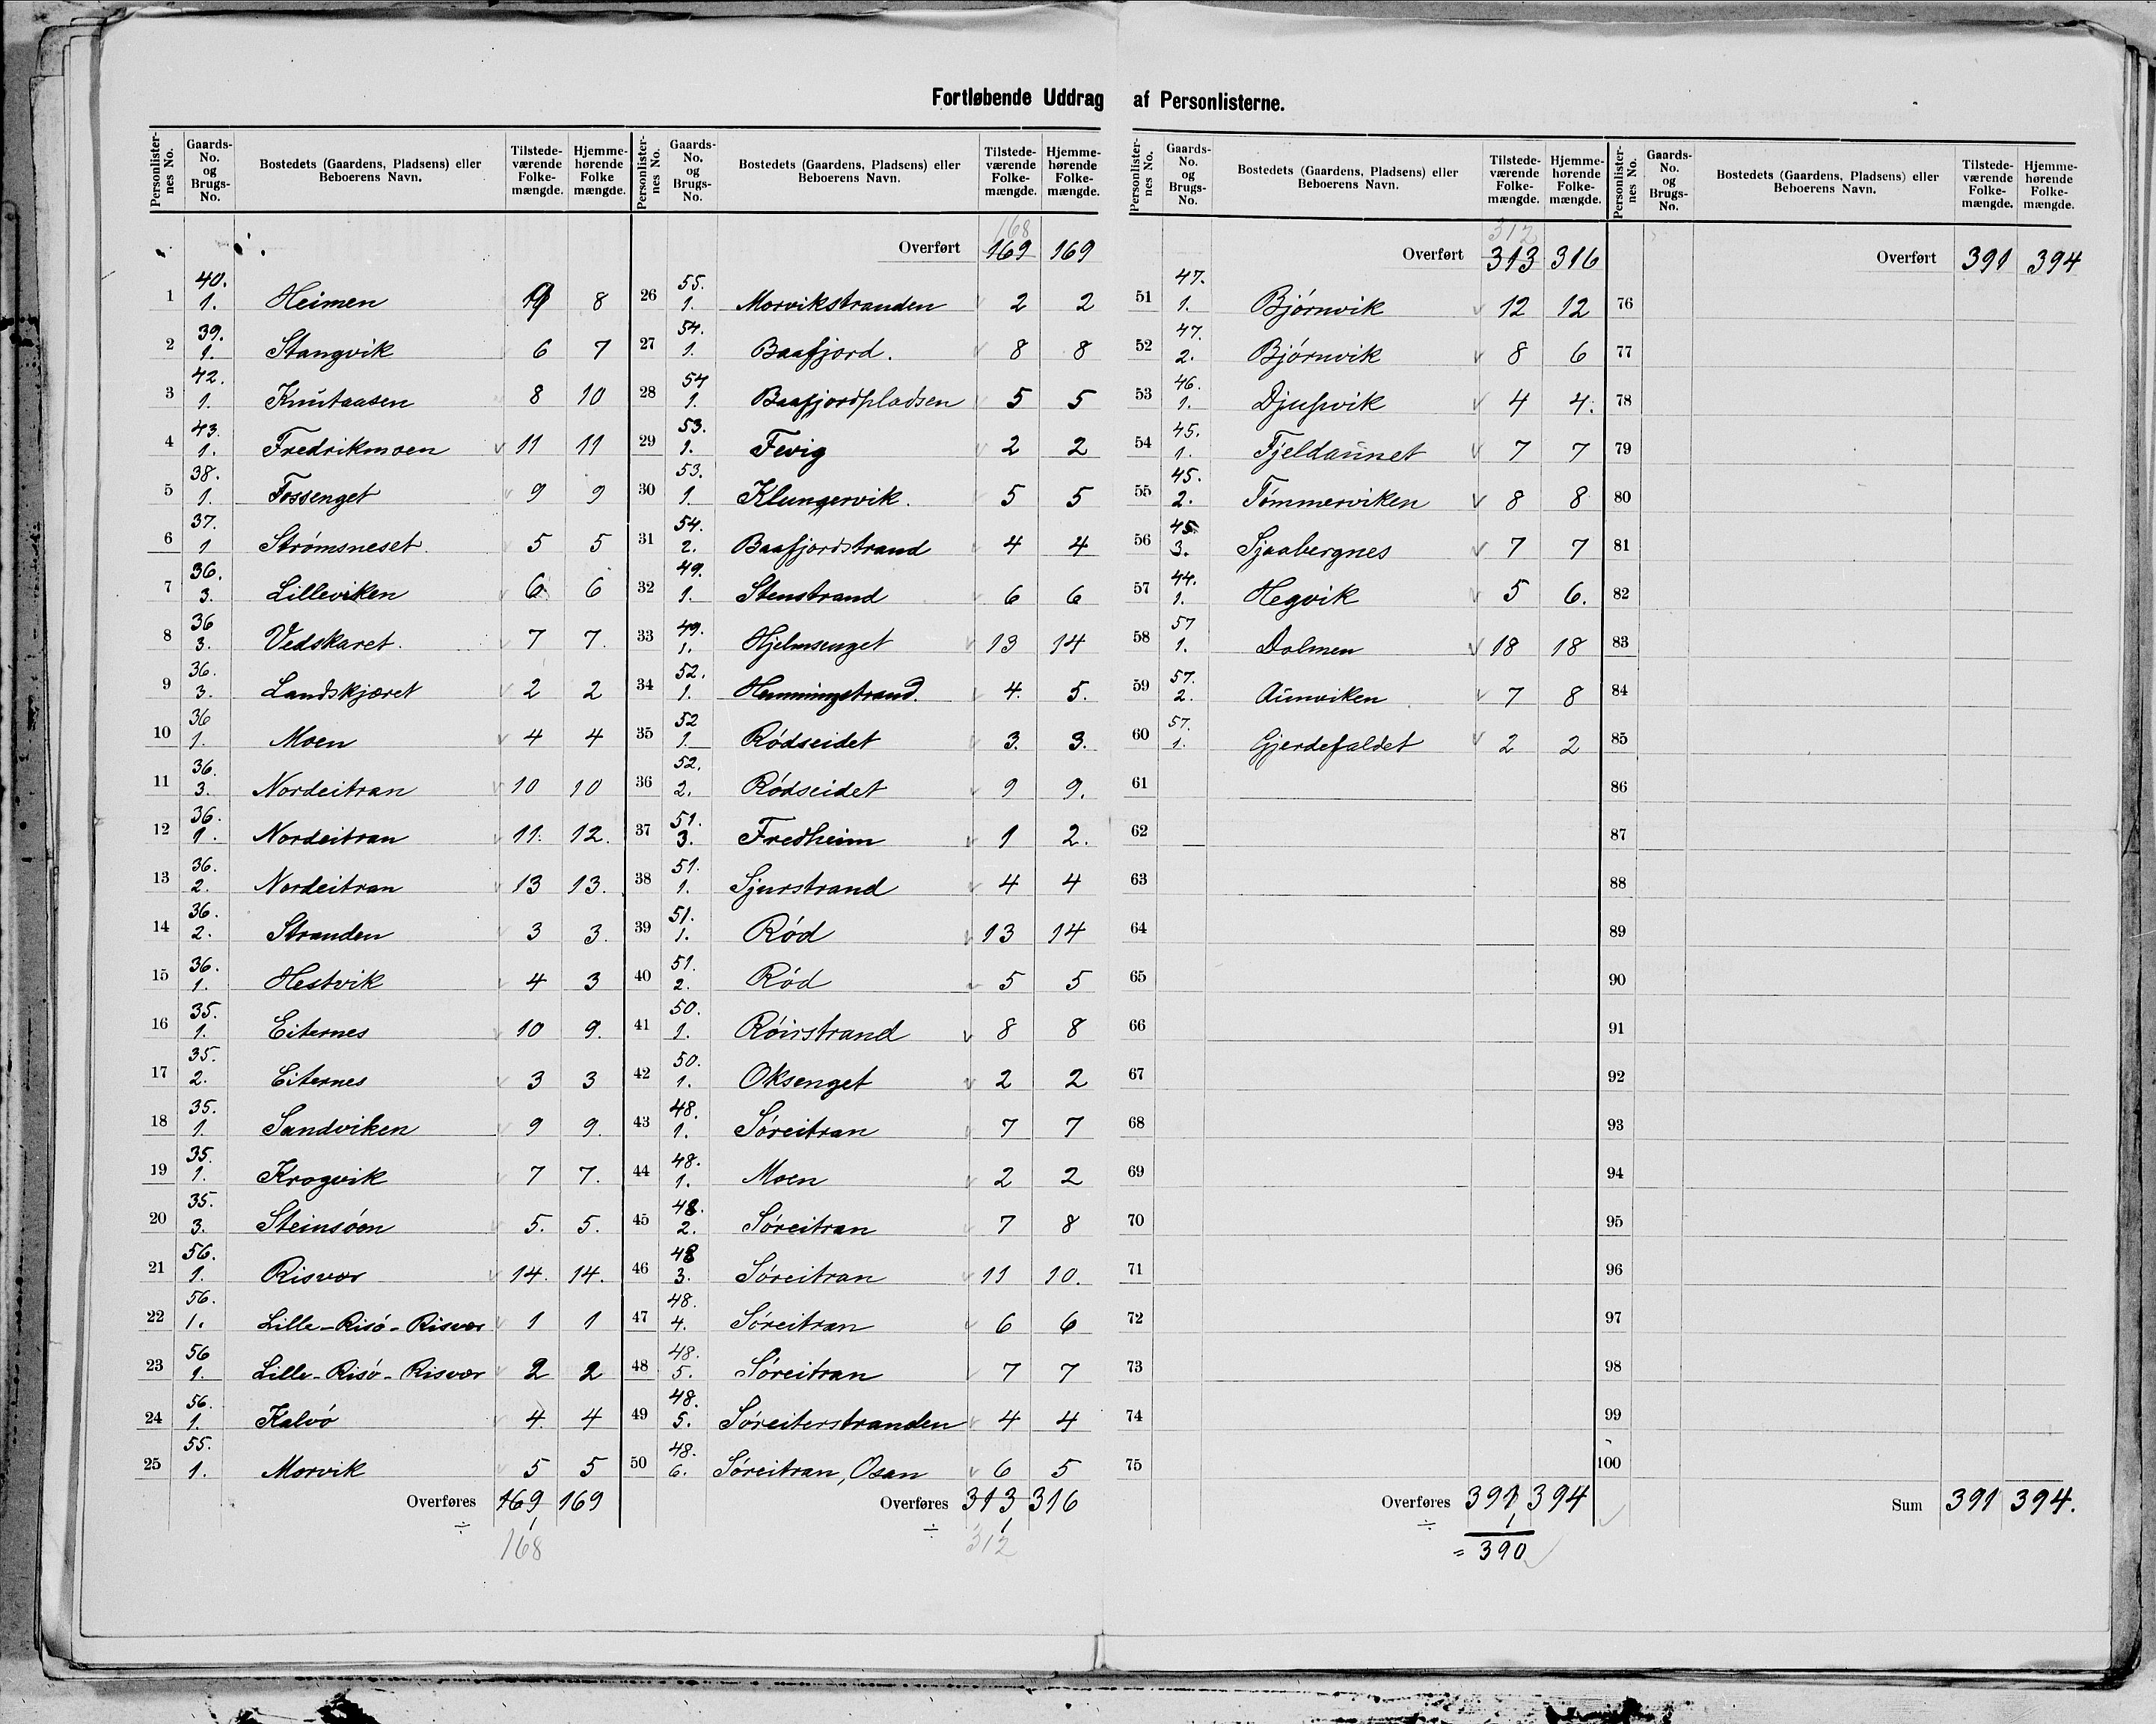 Fortløbende Uddrag af Personlisterne.
Personlisternes No. Gaards-No. og Brugs-No. Bostedets (Gaardens, Pladsens) eller Beboerens Navn. Tilstedeværende Folkemængde. Hjemmehørende Folke mængde.
1 40. 1. Heimen 8
2 39. 1. Stangvik 6 7
3 42. 1. Knutaasen 8 10
4 43. 1. Fredrikmoen v 11 11
5 38. 1. Fossenget v 9 9
6 37. 1 Strømsneset. v 5 5
7 36. 3. Lilleviken v 6 6
8 36 3. Vedskaret. v 7 7.
9 36. 3. Landskjæret v 2 2
10 36 1. Moen v 4 4
11 36. 3. Nordeitran v 10 10
12 36. 1. Nordeitran v 11. 12.
13 36. 2. Nordeitran v 13 13.
14 36. 2. Stranden v 3 3.
15 36. 1. Hestvik v 4 3
16 35. 1. Eiternes v 10 9.
17 35. 2. Eiternes v 3 3
18 35. 1. Sandviken v 9 9.
19 35. 1. Krogvik v 7 7.
20 35. 3. Steinsöen v 5. 5.
21 56. 1. Risvær v 14. 14.
22 56. 1. Lille-Risö-Risvær v 1 1
23 56 1. Lille-Risö-Risvær v 2 2
24 56. 1. Kalvö v 4. 4
25 55. 1. Morvik v 5 5
Overføres 169 169
÷ 1
168
Personlisternes No. Gaards-No. og Brugs-No. Bostedets (Gaardens, Pladsens) eller Beboerens Navn. Tilstedeværende Folkemængde. Hjemmehørende Folkemængde.
168
Overført 169 169
26 55. 1. Morvikstranden v 2 2
27 54. 1. Baafjord. v 8 8
28 54 1. Baafjordpladsen v 5 5
29 53. 1. Fevig v 2 2
30 53. 1. Klungervik. 5 5
31 54. 2. Baafjordstrand v 4 4
32 49. 1. Stenstrand v 6 6
33 49. 1. Hjelmsenget v 13 14
34 52. 1. Henningstrand. v 4. 5.
35 52 1. Rödseidet v 3. 3.
36 52. 2. Rödseidet v 9 9.
37 51. 3. Fredheim v 1 2.
38 51. 1. Sjurstrand v 4 4
39 51. 1. Röd v 13 14
40 51. 2. Röd v 5 5
41 50. 1. Röirstrand v 8 8
42 50. 1. Oksenget v 2 2
43 48. 1. Söreitran v 7 7
44 48. 1. Moen v 2 2
45 48. 2. Söreitran v 7 8
46 48 3. Söreitran v 11 10.
47 48. 4. Söreitran v 6 6
48 48. 5. Söreitran v 7 7
49 48. 5. Söreiterstranden v 4 4
50 48. 6. Söreitran, Osan v 6 5
Overføres 313 316
÷ 1
312
Personlisternes No. Gaards-No. og Brugs-No. Bostedets (Gaardens, Pladsens) eller Beboerens Navn. Tilstedeværende Folkemængde. Hjemmehørende Folkemængde.
312
Overført 313 316
51 47. 1. Björnvik v 12 12
52 47. 2. Björnvik v 8 6
53 46. 1. Djupvik v 4 4.
54 45. 1. Fjeldaunet v 7 7
55 45. 2. Tömmerviken v 8 8
56 45. 3. Sjaabergnes v 7 7
57 44. 1. Hegvik v 5 6.
58 57 1. Dolmen v 18 18
59 57. 2. Aunviken v 7 8
60 57. 1. Gjerdefaldet v 2 2
61
62
63
64
65
66
67
68
69
70
71
72
73
74
75
Overføres 391 394
÷ 1
= 390
Personlisternes No. Gaards-No. og Brugs-No. Bostedets (Gaardens, Pladsens) eller Beboerens Navn. Tilstedeværende Folkemængde. Hjemmehørende Folkemængde.
Overført 391 394
76
77
78
79
80
81
82
83
84
85
86
87
88
89
90
91
92
93
94
95
96
97
98
99
100
Sum 391 394.